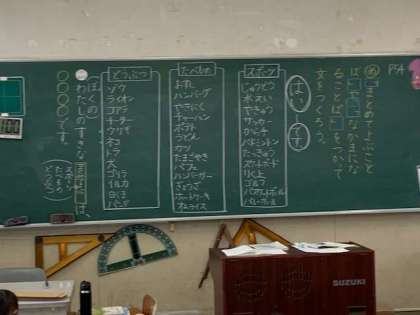 P54
め まとめてよぶこと
ば
なかまにな
ることば
をつかって
文をつくろう。
はい
です
スポーツ
じゅうどう
水えい
やきゅう
サッカー
からて
バドミントン
たっきゅう
スケートボード
りく上
ゴルフ
バスケットボール
バレーボール
たべもの
おすし
ハンバーグ
やきにく
チャーハン
ポテト
うどん
カツ
たまごやき
パフェ
ハンバーガー
ぎょうざ
ホットケーキ
オムライス
どうぶつ
ゾウ
ライオン
コアラ
チーター
ウサギ
ネコ
トラ
犬
ゴリラ
イルカ
白くま
パンダ
ぼくの
わたしのすきな
は、
○○○○です。
スポーツ
たべもの
どうぶつ
SUZUKI